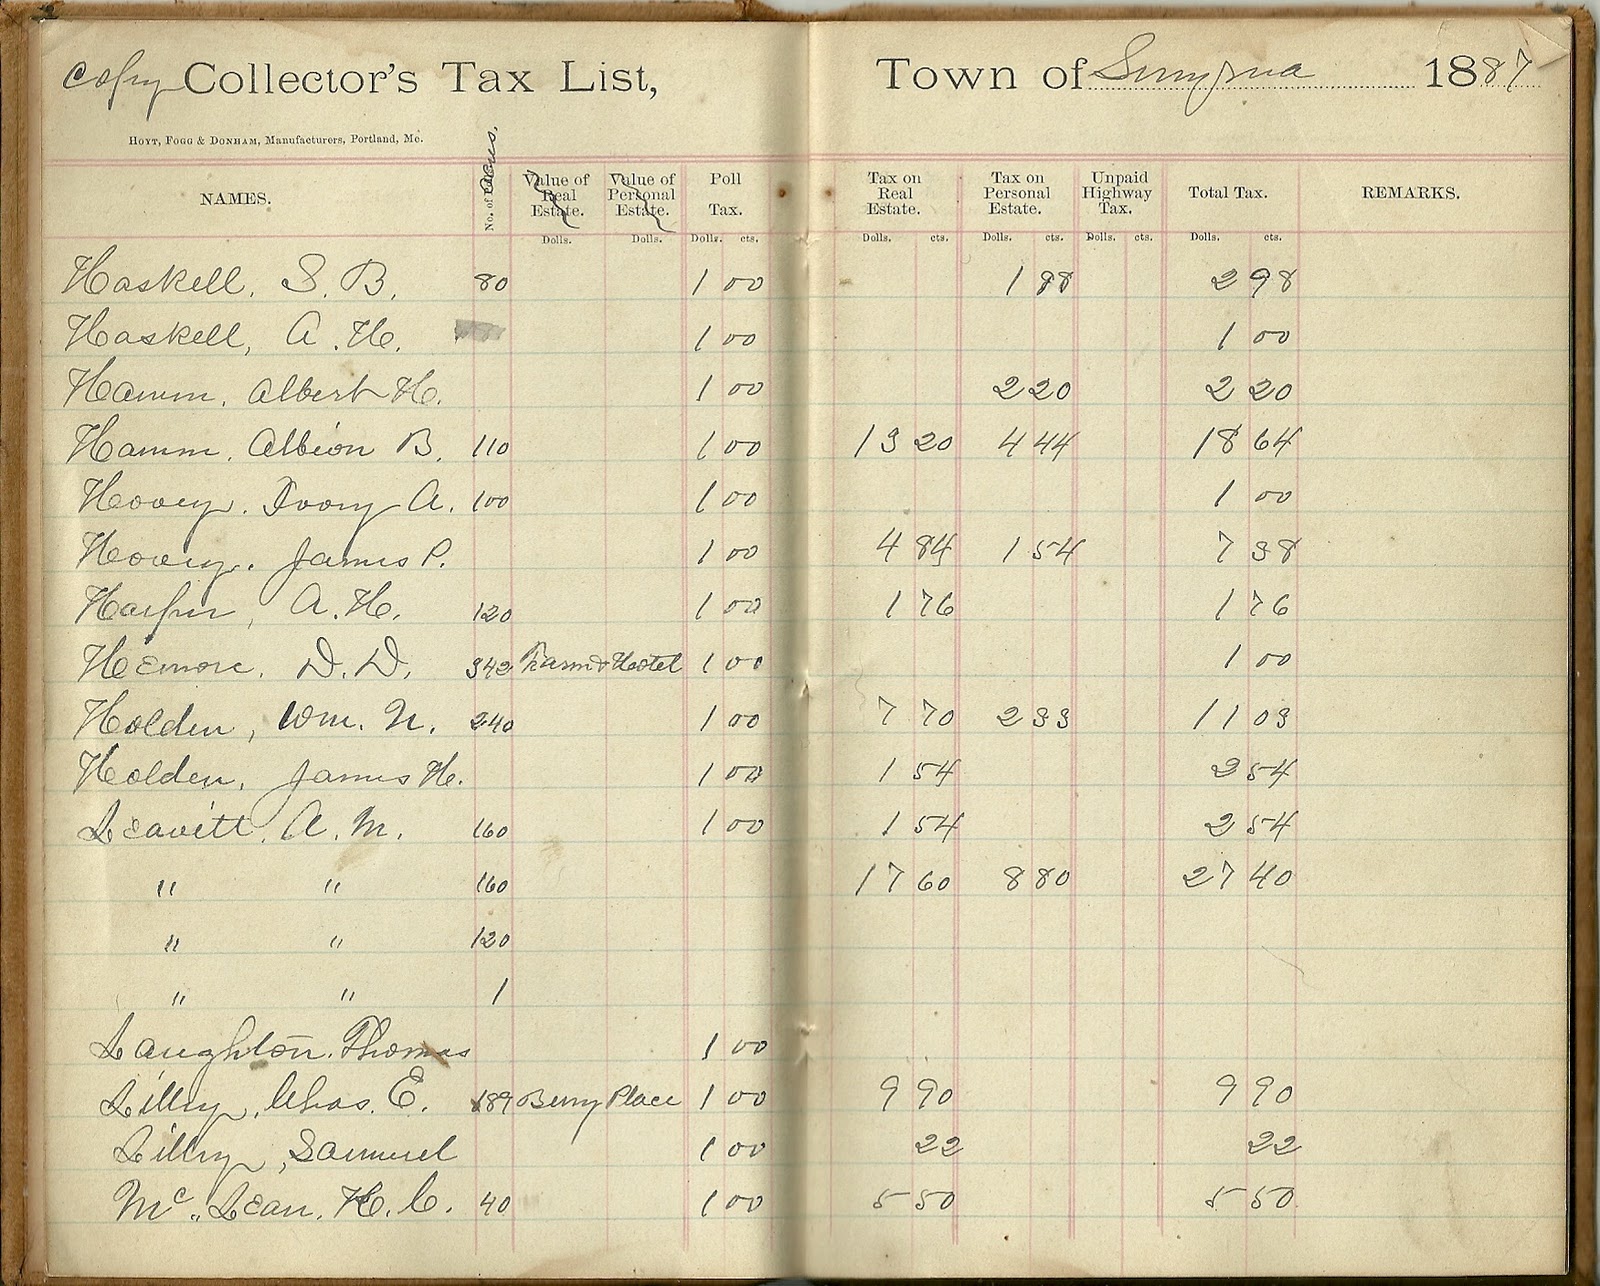 Copy Collector's Tax List, Town of Smyrna 1887
Hoyt, Fogg & Donham, Manufacturers, Portland, Me.
NAMES. No. of Acres. Value of Real Estate. Value of Personal Estate. Poll Tax. Tax on Real Estate. Tax on Personal Estate. Unpaid Highway Tax. Total Tax. REMARKS.
Dolls. Dolls. Dolls. cts. Dolls. cts. Dolls. cts. Dolls. cts. Dolls. cts.
Haskell, S. B. 80 1 00 1 98 2 98
Haskell, A. H. 1 00 1 00
Hamm, Albert H. 1 00 2 20 2 20
Hamm, Albion B. 110 1 00 13 20 4 44 18 64
Hovey, Ivory A. 100 1 00 1 00
Hovey, James P. 1 00 4 84 1 54 7 38
Harper, A. H. 120 1 00 1 76 1 76
Hemore, D. D. 342 Farm & Hotel 1 00 1 00
Holden, Wm. N. 240 1 00 7 70 2 33 11 03
Holden, James H. 1 00 1 54 2 54
Leavitt, A. M. 160 1 00 1 54 2 54
" " 160 17 60 8 80 27 40
" " 120
" " 1
Laughton, Thomas 1 00
Lilley, Chas. E. 189 Berry Place 1 00 9 90 9 90
Lilley, Samuel 1 00 22 22
Mc. Lean, H. C. 40 1 00 5 50 5 50